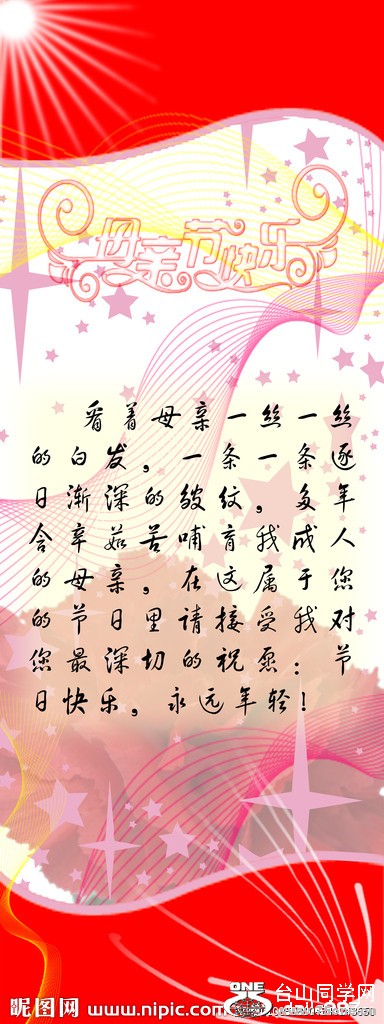 母亲节快乐
看着母亲一丝一丝
的白发，一条一条逐
日渐深的皱纹，多年
含辛茹苦哺育我成人
的母亲，在这属于您
的节日里请接受我对
您最深切的祝愿：节
日快乐，永远年轻！
ONE
昵图网 www.nipic.com
台山同学网